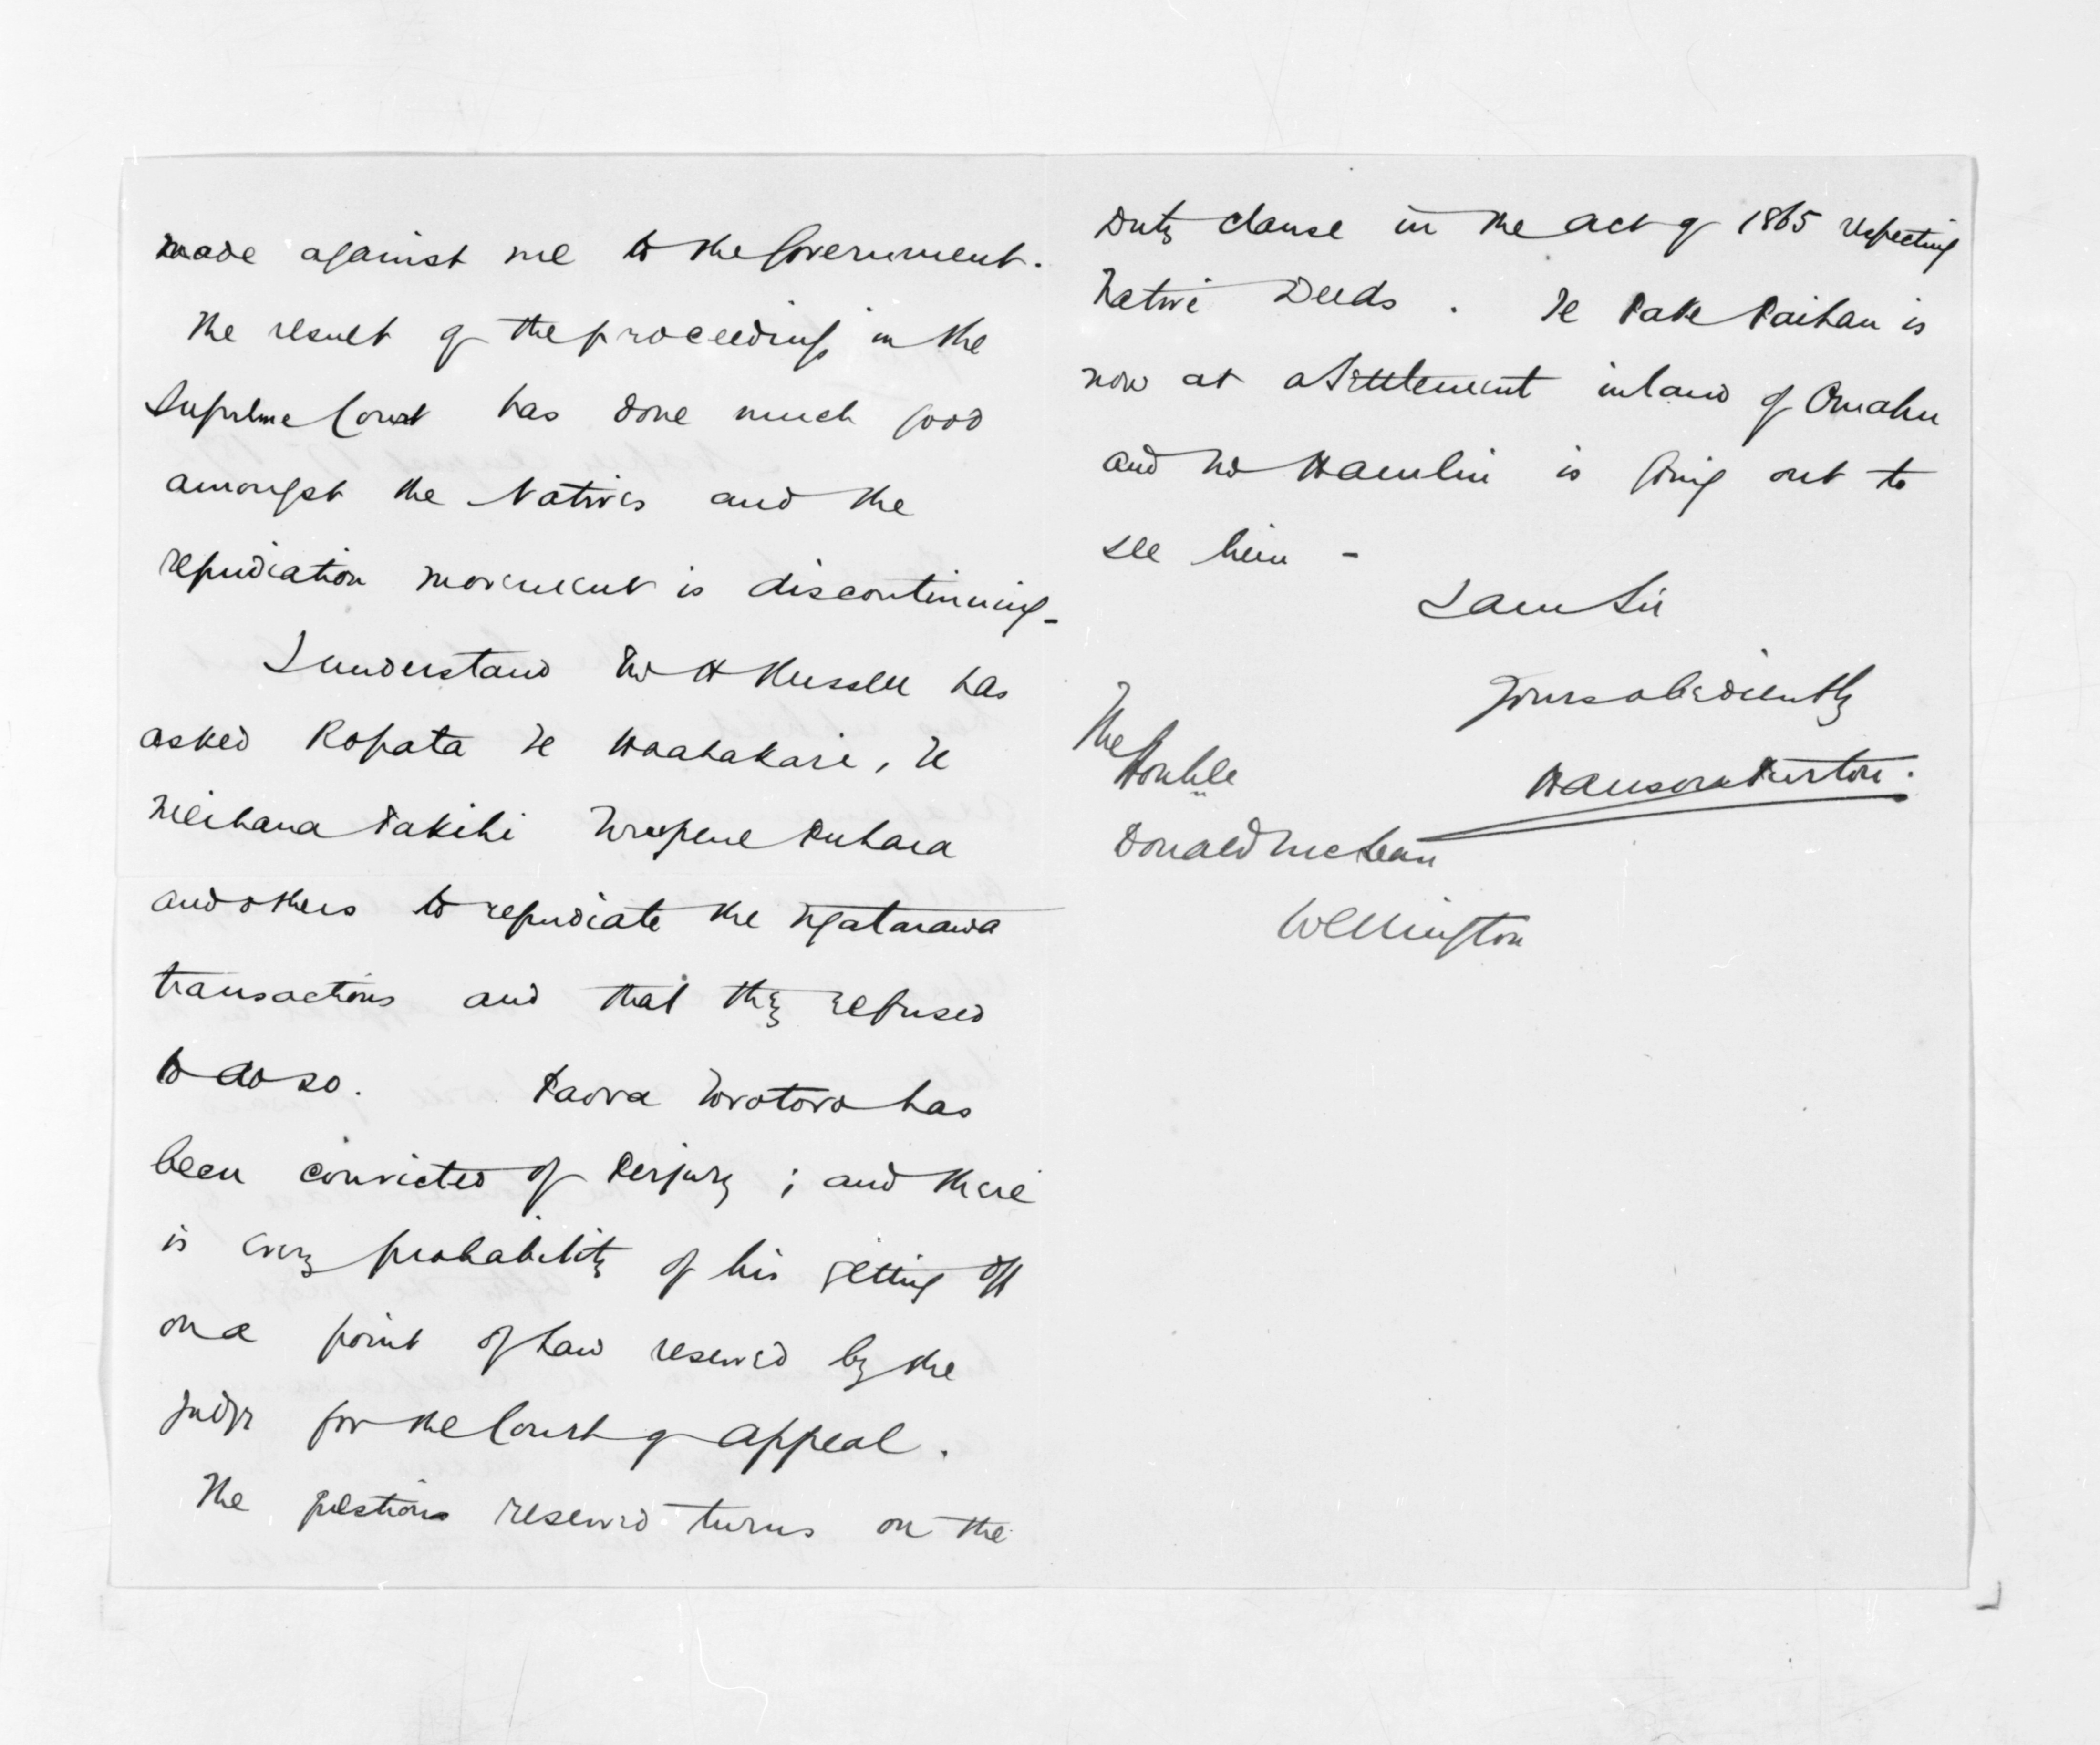 made against me to the Government.
The result of the proceedings in the
Supreme Court has done much good
amongst the Natives and the
repudiation movement is discontinuing -
I understand Mr H Russell has
asked Ropata Te Hoahakari, Te
Meihana Takihi Urupene Puhara
and others to repudiate the Ngatarawa
transactions and that they refused
to do so. Paora Torotoro has
been convicted of Perjury ; and there
is every probability of his getting off
on a point of Law reserved by the
Judge for the Court of Appeal.
The questions reserved turns on the
Duty clause in the Act of 1865 respecting
Native Deeds . Te Pake Paihau is
now at a Settlement inland of Omahu
and Mr Hamlin is going out to
see him -
I am Sir
Yours obediently
Hanson Turton.
The
Honble
Donald McLean
Wellington